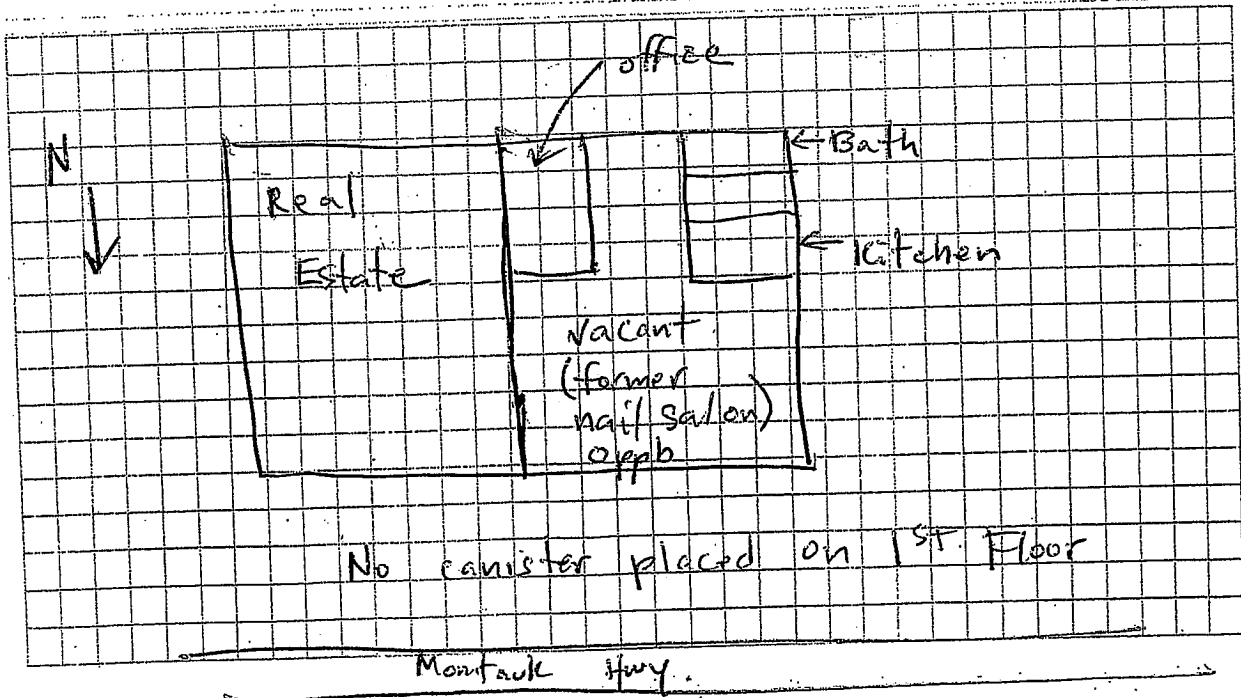 office
N
← Bath
Real
Estate
← Kitchen
Vacant
(former
nail salon)
0ppb
No canister placed on 1ST Floor
Montauk Hwy.